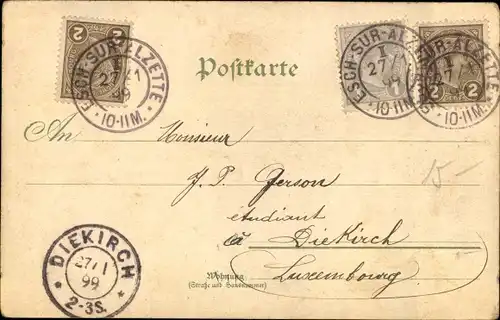 2 2
ESCH-SUR-ALZETTE
I
27/1
99
10-11M.
Postkarte
1
ESCH-SUR-ALZETTE
I
27/1
99
10-11M.
2 2
ESCH-SUR-ALZETTE
I
27/1
99
10-11M.
An Monsieur
J. P. Gerson
étudiant
à Diekirch
Luxembourg
Wohnung
(Straße und Hausnummer)
15-
DIEKIRCH
27/1
99
2-3S.